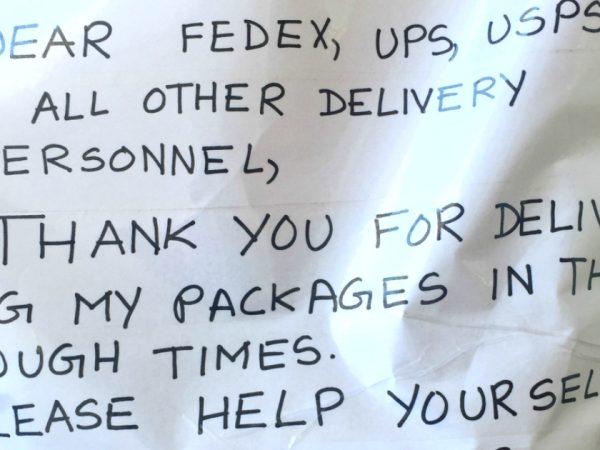 DEAR FEDEX, UPS, USPS
ALL OTHER DELIVERY
ERSONNEL,
THANK YOU FOR DELIV
G MY PACKAGES IN TH
OUGH TIMES.
LEASE HELP YOURSEL